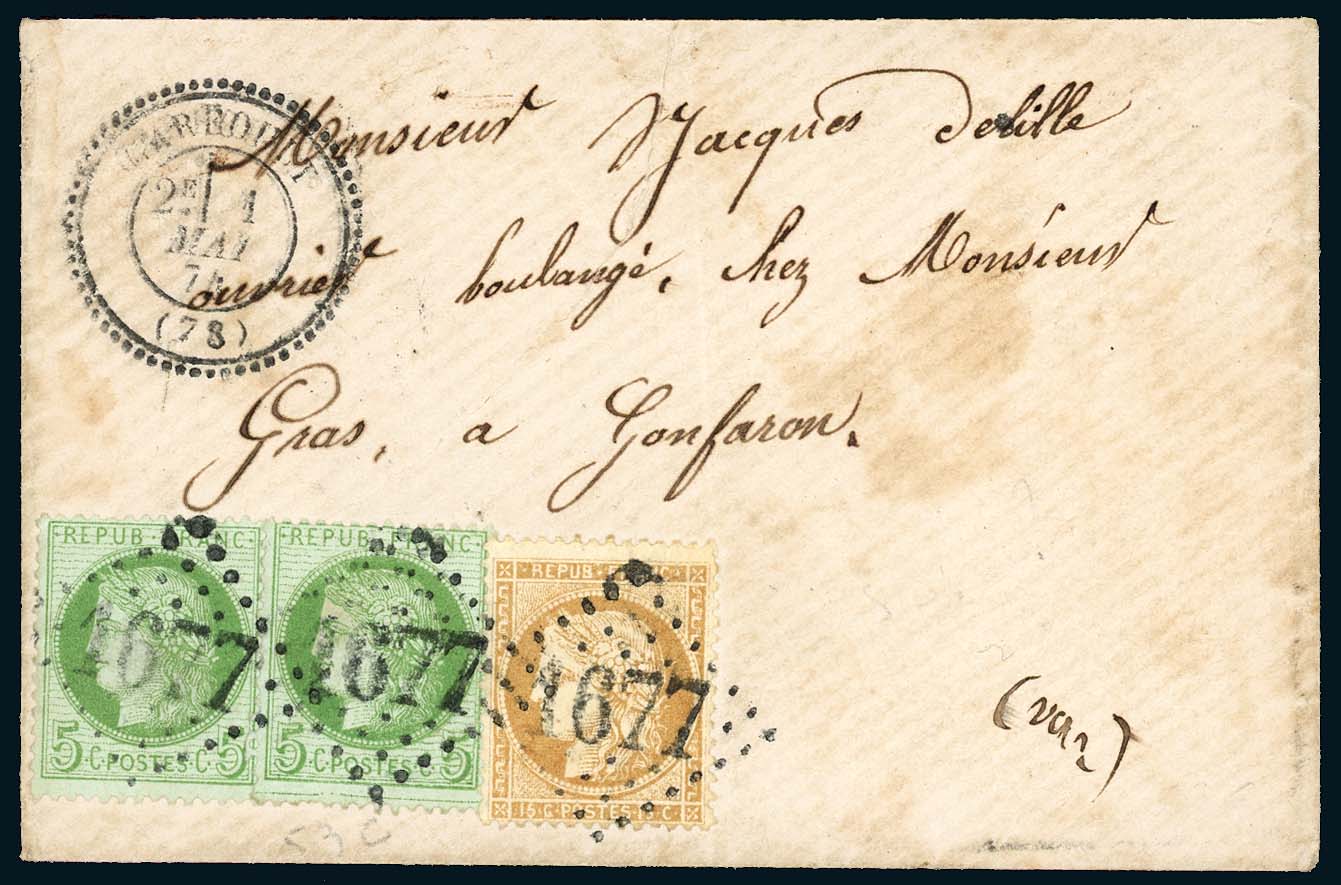 Monsieur Jacques delille
ouvrier boulangé, chez Monsieur
Gras, a Gonfaron.
(var)
2E 1
MAI
74
(78)
REPUB·FRANC·
5·C·POSTES·C·5
1677
REPUB·FRANC·
5·C·POSTES·C·5
1677
·REPUB·FRANC·
·15·C·POSTES·15·C·
1677
53 c